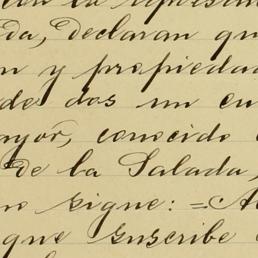 con la represen
da, declaran qu
n y propieda
de dos un cu
ayor, conocido
de la Salada,
no sigue: = A
que suscribe